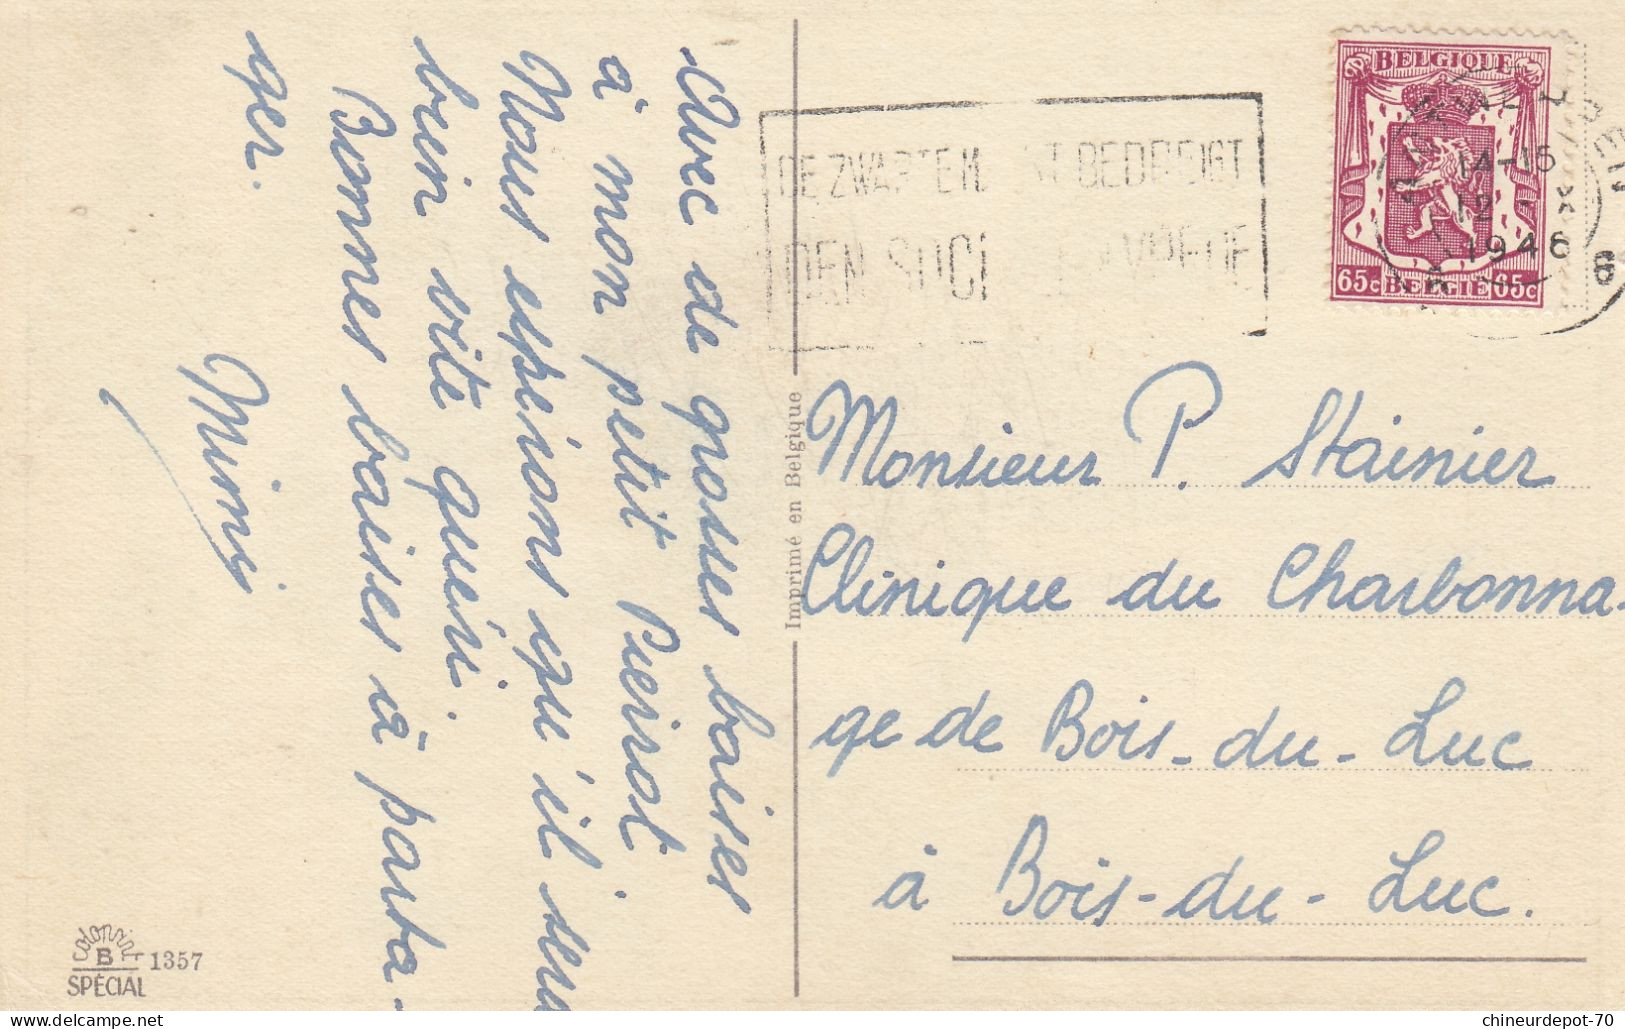 Avec de grosses baises
à mon petit Pierrot
Nous espérons qu'il sera
bien vite guéri.
Bonnes baises à parta-
ger.
Mimi
colorprint
B 1357
SPÉCIAL
Imprimé en Belgique
DE ZWARTE M   T BEDREIGT
DEN SOCI     VREDE
BELGIQUE
65c BELGIË 65c
14-15
12 - X
1946
6
Monsieur P. Stainier
Clinique du Charbonna-
ge de Bois-du-Luc
à Bois-du-Luc.
chineurdepot-70
© delcampe.net